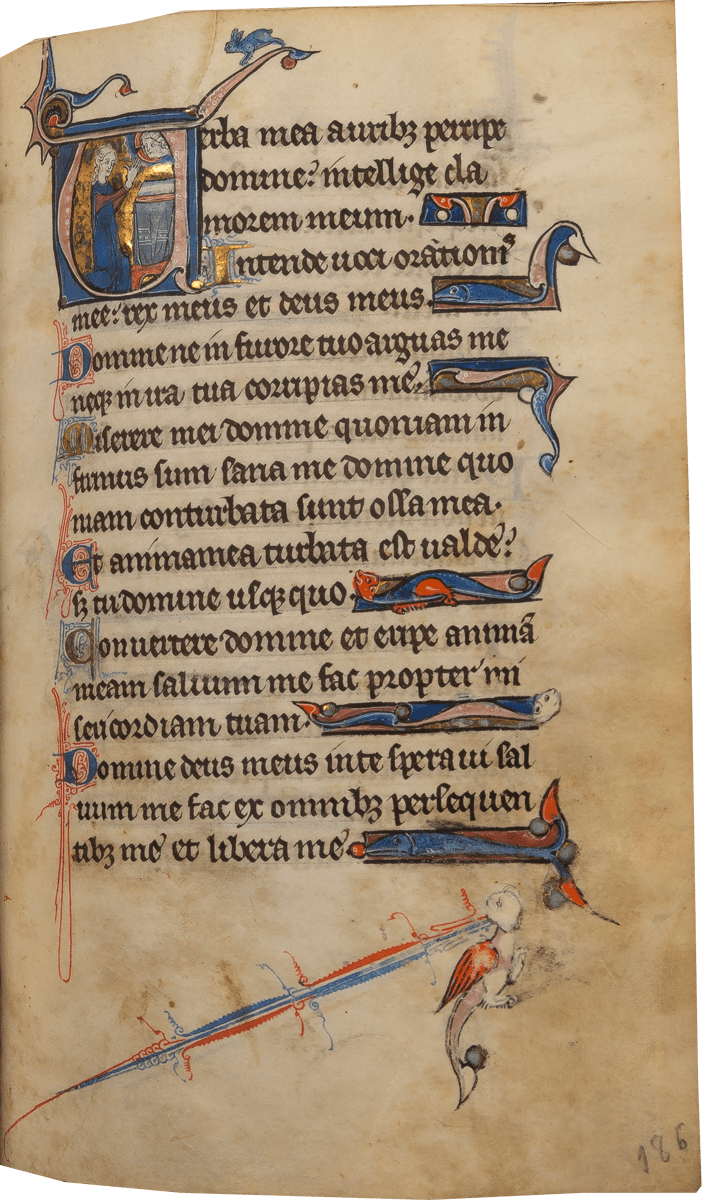 Verba mea auribꝫ percipe
domine? intellige cla
morem meum.
Intende uoci orationis
mee: rex meus et deus meus.
Domine ne in furore tuo arguas me
neqꝫ in ira tua corripias me.
Miserere mei domine quoniam in
firmus sum sana me domine quo
niam conturbata sunt ossa mea.
Et anima mea turbata est ualde?
sꝫ tu domine usqꝫ quo.
Conuertere domine et eripe animā
meam saluum me fac propter mi
sericordiam tuam.
Domine deus meus in te speraui sal
uum me fac ex omnibꝫ persequen
tibꝫ me et libera me
186